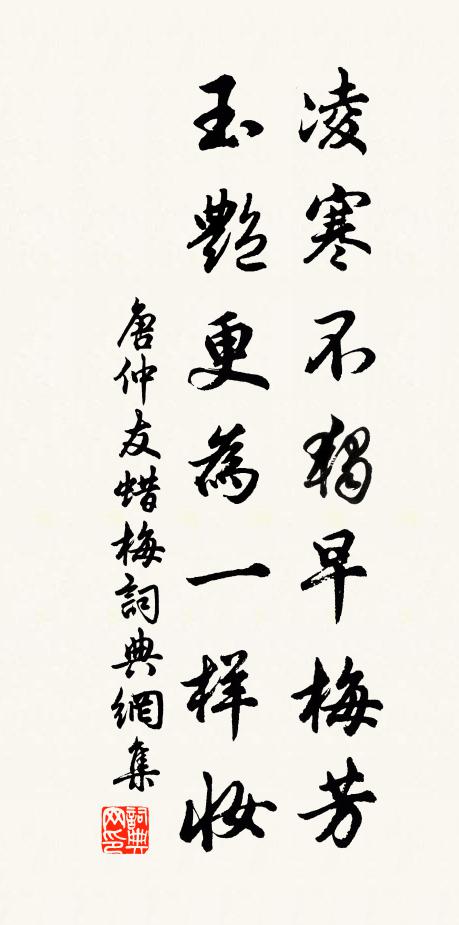 凌寒不独早梅芳
玉艷更為一样妝
唐仲友蜡梅詞典網集
詞典网印